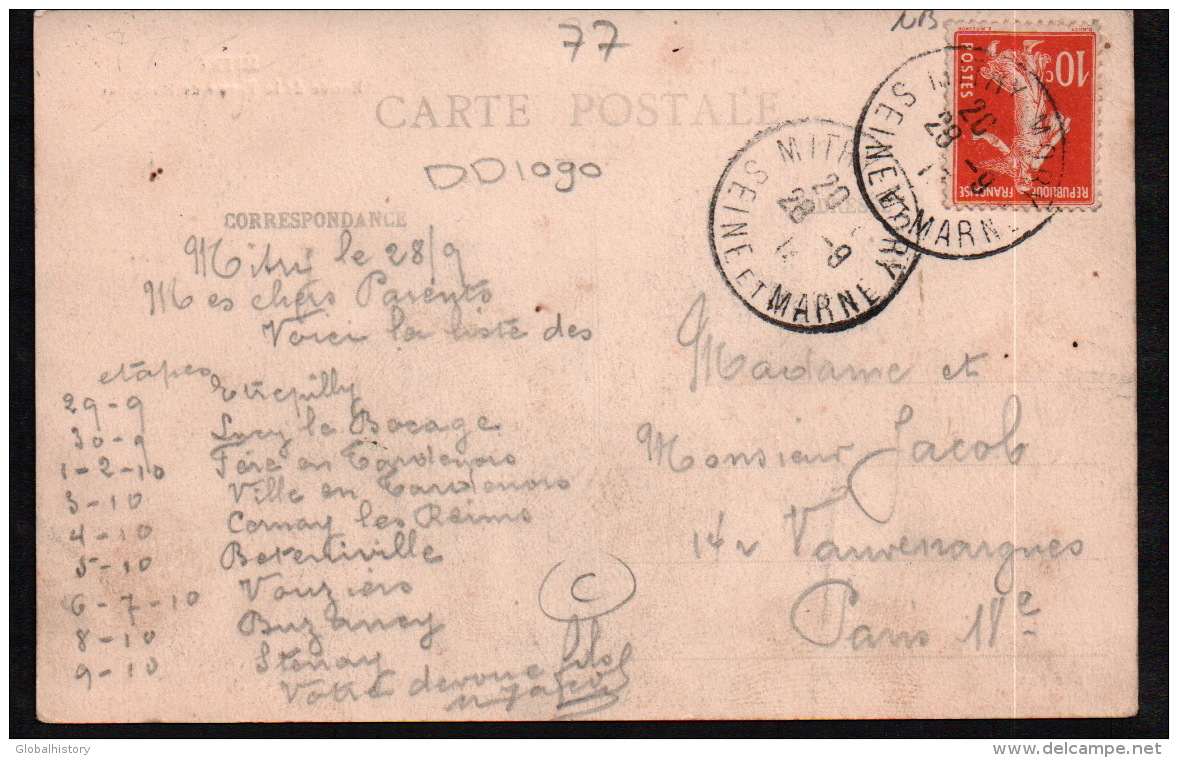 77
NB
CARTE POSTALE
DD1090
CORRESPONDANCE
10c
POSTES
REPUBLIQUE FRANÇAISE
MITRY MORY
20
28 -9
SEINE ET MARNE
MITRY MORY
20
28 -9
SEINE ET MARNE
Mitri le 28/9
Mes chers Parents
Voici la liste des
etapes
29-9 Etrepilly
30-9 Lucy le Bocage
1-2-10 Fère en Tardenois
3-10 Ville en Tardenois
4-10 Cernay les Reims
5-10 Beteniville
6-7-10 Vouziers
8-10 Buzancy
9-10 Stenay
Votre devoué fils
Jacob
C
Madame et
Monsieur Jacob
Vauvenargues
Paris 18e
Globalhistory
delcampe.net